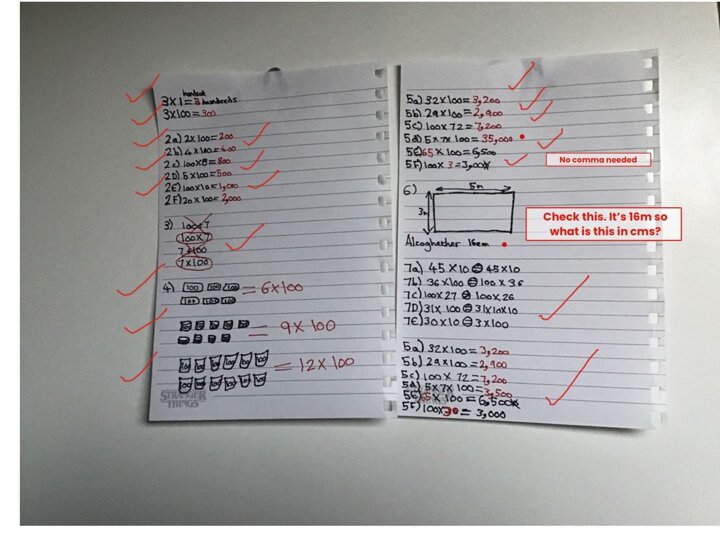 hundred
3x1=3 hundreds
3x100=300
2a) 2x100=200
2b) 4x100=400
2c) 100x8=800
2D) 5x100=500
2E) 100x10=1,000
2F) 20x100=2,000
3) 100+7
100x7
7+100
7x100
4) 100 100 100 = 6x100
100 100 100
= 9x100
100 100 100 100 100 100 = 12x100
100 100 100 100 100 100
STRANGER
THINGS
5a) 32x100=3,200
5b) 29x100=2,900
5c) 100x72=7,200
5d) 5x7x100=35,000
5E) 65x100=6,500
5F) 100x3=3,000
No comma needed
6) 5m
3m
Check this. It's 16m so
what is this in cms?
Alcoghether 16cm
7a) 45x10 = 45x10
7b) 36x100 = 100x36
7c) 100x27 100x26
7D) 31x100 = 31x10x10
7E) 30x10 = 3x100
5a) 32x100=3,200
5b) 29x100=2,900
5c) 100x72=7,200
5d) 5x7x100=3,500
5E) 65x100=6,500
5F) 100x30=3,000